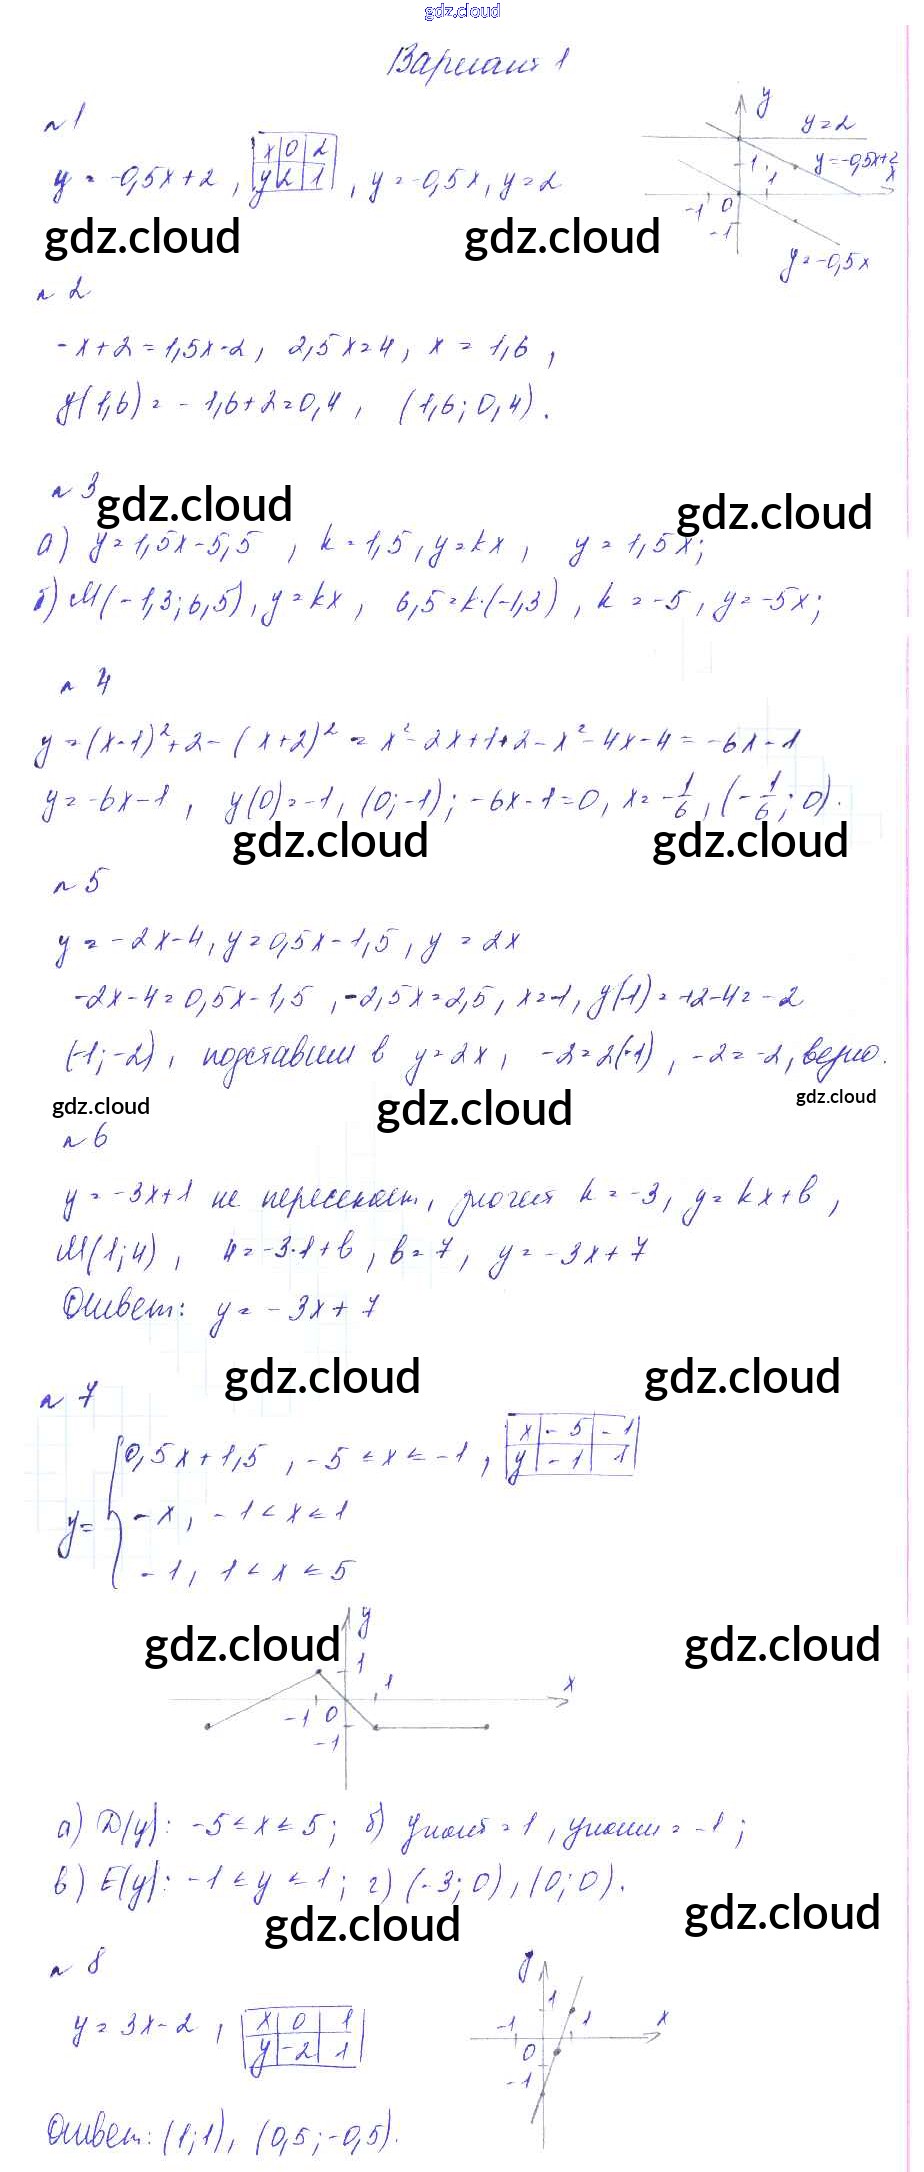 gdz.cloud
Вариант 1
n 1
y = -0,5x+2, x 0 2 y 2 1, y=-0,5x, y=2
y y=2 y=-0,5x+2 x 1 1 -1 0 -1 y=-0,5x
gdz.cloud gdz.cloud
n 2
-x+2=1,5x-2, 2,5x=4, x = 1,6,
y(1,6)= -1,6+2=0,4, (1,6; 0,4).
n 3
gdz.cloud gdz.cloud
а) y=1,5x-5,5, k=1,5, y=kx, y=1,5x;
б) M(-1,3; 6,5), y=kx, 6,5=k·(-1,3), k=-5, y=-5x;
n 4
y=(x-1)²+2-(x+2)² = x²-2x+1+2-x²-4x-4=-6x-1
y=-6x-1, y(0)=-1, (0;-1); -6x-1=0, x=-1/6, (-1/6; 0).
gdz.cloud gdz.cloud
n 5
y=-2x-4, y=0,5x-1,5, y=2x
-2x-4=0,5x-1,5, -2,5x=2,5, x=-1, y(-1)=+2-4=-2
(-1;-2), подставим в y=2x, -2=2(-1), -2=-2, верно.
gdz.cloud gdz.cloud gdz.cloud
n 6
y=-3x+1 не пересекает, значит k=-3, y=kx+b,
M(1;4), 4=-3·1+b, b=7, y=-3x+7
Ответ: y=-3x+7
gdz.cloud gdz.cloud
n 7
y= 0,5x+1,5, -5≤x≤-1, x -5 -1 y -1 1
-x, -1<x≤1
-1, 1<x≤5
gdz.cloud gdz.cloud
y 1 1 x -1 0 -1
а) D(y): -5≤x≤5; б) yнаиб=1, yнаим=-1;
в) E(y): -1≤y≤1; г) (-3;0), (0;0).
gdz.cloud gdz.cloud
n 8
y=3x-2, x 0 1 y -2 1
y 1 -1 1 x 0 -1
Ответ: (1;1), (0,5;-0,5).